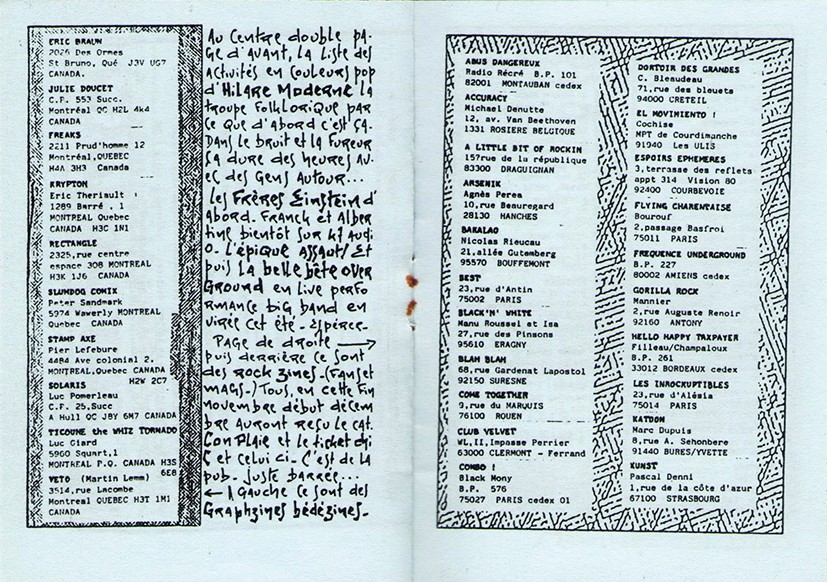 ERIC BRAUN
2026 Des Ormes
St Bruno, Qué J3V UG7
CANADA.
JULIE DOUCET
C.P. 553 Succ.
Montréal QC H2L 4k4
CANADA
FREAKS
2211 Prud'homme 12
Montréal,QUEBEC
H4A 3H3 Canada
KRYPTON
Eric Theriault
1289 Barré . 1
MONTREAL Quebec
CANADA H3C 1N1
RECTANGLE
2325,rue centre
espace 308 MONTREAL
H3K 1J6 CANADA
SLUMDOG COMIX
Peter Sandmark
5974 Waverly MONTREAL
Quebec CANADA
STAMP AXE
Pier Lefebure
4484 Ave colonial 2.
MONTREAL,Quebec CANADA
H2W 2C7
SOLARIS
Luc Pomerleau
C.P. 25,Succ
A Hull QC J8Y 6M7 CANADA
TICOUNE the WHIZ TORNADO
Luc Giard
5960 Squart,1
MONTREAL P.Q. CANADA H3S
6E8
VETO (Martin Lemm)
3514,rue Lacombe
Montreal QUEBEC H3T 1M1
CANADA
Au Centre double pa-
ge d'avant, la liste des
activités en couleurs pop
d'Hilare Moderne la
troupe Folklorique par
ce que d'abord c'est ça.
Dans le bruit et la fureur
ça dure des heures av-
ec des gens autour...
Les Frères Einstein d'
abord. Franck et Alber
tine bientôt sur k7 audi
o. L'épique assaut/ Et
puis la belle bête over
Ground en live perfo
rmance big band en
virée cet été. Espérée.
Page de droite →
puis derrière ce sont
des rock zines. (Fans et
mags.) Tous, en cette fin
novembre début décem
bre auront reçu le cat.
Con Plaie et le ticket chi
c et celui ci. C'est de la
pub. Juste barrée...
← A gauche ce sont des
Graphzines bédézines.
ABUS DANGEREUX
Radio Récré B.P. 101
82001 MONTAUBAN cedex
ACCURACY
Michael Denutte
12, av. Van Beethoven
1331 ROSIERE BELGIQUE
A LITTLE BIT OF ROCKIN
157rue de la république
83300 DRAGUIGNAN
ARSENIK
Agnès Perea
10,rue Beauregard
28130 HANCHES
BAKALAO
Nicolas Rieucau
21,allée Gutemberg
95570 BOUFFEMONT
BEST
23,rue d'Antin
75002 PARIS
BLACK'N' WHITE
Manu Roussel et Isa
27,rue des Pinsons
95610 ERAGNY
BLAH BLAH
68,rue Gardenat Lapostol
92150 SURESNE
COME TOGETHER
9,rue du MARQUIS
76100 ROUEN
CLUB VELVET
WL,II,Impasse Perrier
63000 CLERMONT - Ferrand
COMBO !
Black Mony
B.P. 576
75027 PARIS cedex 01
DORTOIR DES GRANDES
C. Bleaudeau
71,rue des bleuets
94000 CRETEIL
EL MOVIMIENTO !
Cochise
MPT de Courdimanche
91940 Les ULIS
ESPOIRS EPHEMERES
3,terrasse des reflets
appt 314 Vision 80
92400 COURBEVOIE
FLYING CHARENTAISE
Bourouf
2,passage Basfroi
75011 PARIS
FREQUENCE UNDERGROUND
B.P. 227
80002 AMIENS cedex
GORILLA ROCK
Mannier
2,rue Auguste Renoir
92160 ANTONY
HELLO HAPPY TAXPAYER
Filleau/Champaloux
B.P. 261
33012 BORDEAUX cedex
LES INROCKUPTIBLES
23,rue d'Alésia
75014 PARIS
KATDOM
Marc Dupuis
8,rue A. Sehonbere
91440 BURES/YVETTE
KUNST
Pascal Denni
1,rue de la côte d'azur
67100 STRASBOURG